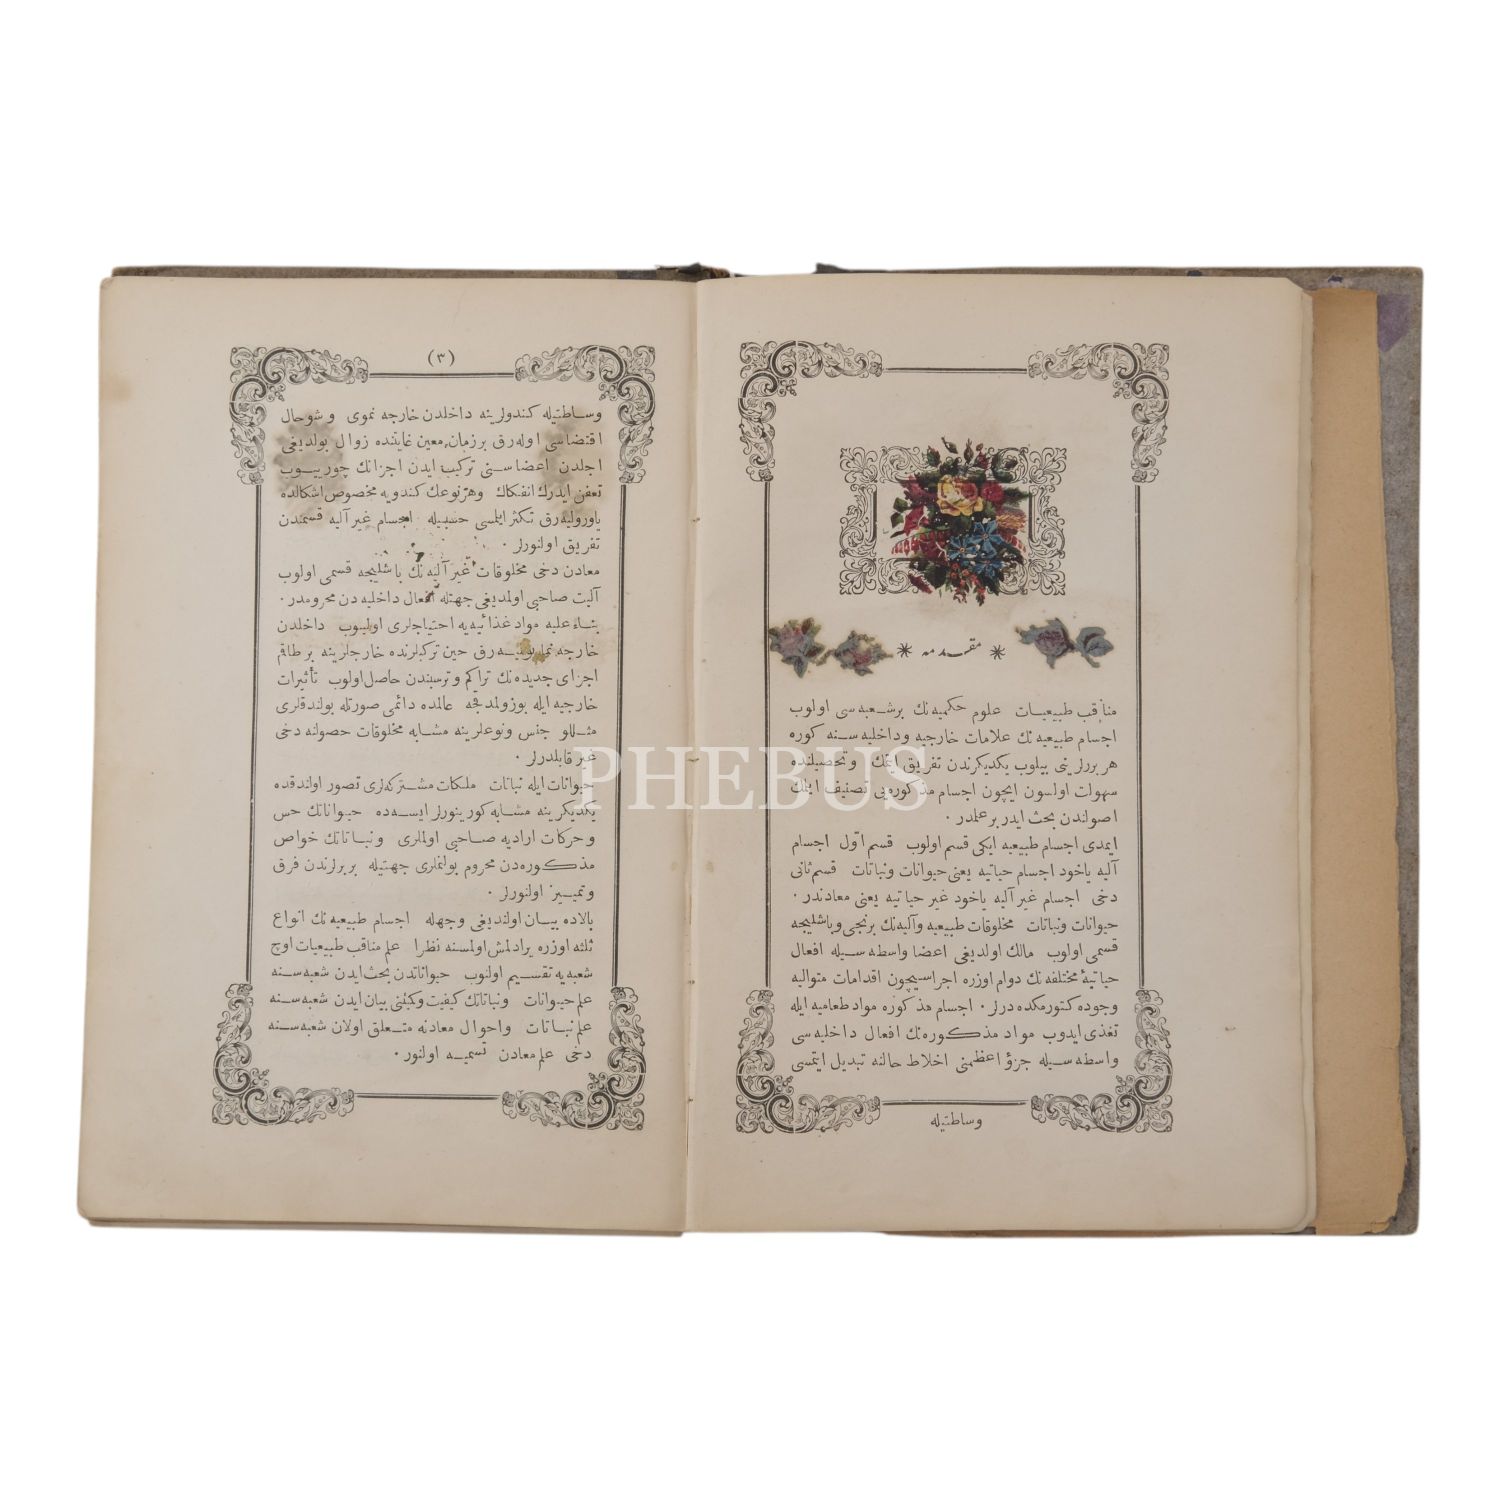 ✳ مقدمه ✳
مناقب طبیعیات علوم حکمیه نك برشعبه سی اولوب
اجسام طبیعیه نك علامات خارجیه وداخلیه سنه کوره
هر برلرینی بیلوب یکدیکرندن تفریق ایتمك وتحصیلنده
سهولت اولسون ایچون اجسام مذکوره یی تصنیف ایتمك
اصولندن بحث ایدر برعلمدر ۰
ایمدی اجسام طبیعیه ایکی قسم اولوب قسم اول اجسام
آلیه یاخود اجسام حیاتیه یعنی حیوانات ونباتات قسم ثانی
دخی اجسام غیر آلیه یاخود غیر حیاتیه یعنی معادندر ۰
حیوانات ونباتات مخلوقات طبیعیه وآلیه نك برنجی وباشلیجه
قسمی اولوب مالك اولدیغی اعضا واسطه سیله افعال
حیاتیهٔ مختلفه نك دوام اوزره اجراسیچون اقدامات متوالیه
وجوده کتورمکده درلر ۰ اجسام مذکوره مواد طعامیه ایله
تغذی ایدوب مواد مذکوره نك افعال داخلیه سی
واسطه سیله جزؤ اعظمنی اخلاط حالنه تبدیل ایتمسی
وساطتیله
(۳)
وساطتیله کندولرینه داخلدن خارجه نموی وشو حال
اقتضاسی اوله رق برزمان معین غایتنده زوال بولدیغی
اجلدن اعضاسنی ترکیب ایدن اجزانك چورییوب
تعفن ایدرك انفکاك وهرنوعك کندویه مخصوص اشکالده
یاورولیه رق تکثر ایلمسی حسبیله اجسام غیر آلیه قسمندن
تفریق اولنورلر ۰
معادن دخی مخلوقات غیر آلیه نك باشلیجه قسمی اولوب
آلیت صاحبی اولمدیغی جهتله افعال داخلیه دن محرومدر ۰
بناءً علیه مواد غذائیه یه احتیاجلری اولمیوب داخلدن
خارجه نما بولمیه رق حین ترکیبلرنده خارجلرینه بر طاقم
اجزای جدیده نك تراکم وترسبندن حاصل اولوب تأثیرات
خارجیه ایله بوزولمدقجه عالمده دائمی صورتله بولندقلری
مثللو جنس ونوعلرینه مشابه مخلوقات حصولنه دخی
غیر قابلدرلر ۰
حیوانات ایله نباتات ملکات مشترکه لری تصور اولندقده
یکدیکرینه مشابه کورینورلر ایسه ده حیواناتك حس
وحرکات ارادیه صاحبی اولملری ونباتاتك خواص
مذکوره دن محروم بولنملری جهتیله بربرلرندن فرق
وتمییز اولنورلر ۰
بالاده بیان اولندیغی وجهله اجسام طبیعیه نك انواع
ثلثه اوزره یرادلمش اولمسنه نظرا علم مناقب طبیعیات اوچ
شعبه یه تقسیم اولنوب حیواناتدن بحث ایدن شعبه سنه
علم حیوانات ونباتاتك کیفیت وکمیتنی بیان ایدن شعبه سنه
علم نباتات واحوال معادنه متعلق اولان شعبه سنه
دخی علم معادن تسمیه اولنور ۰
PHEBUS